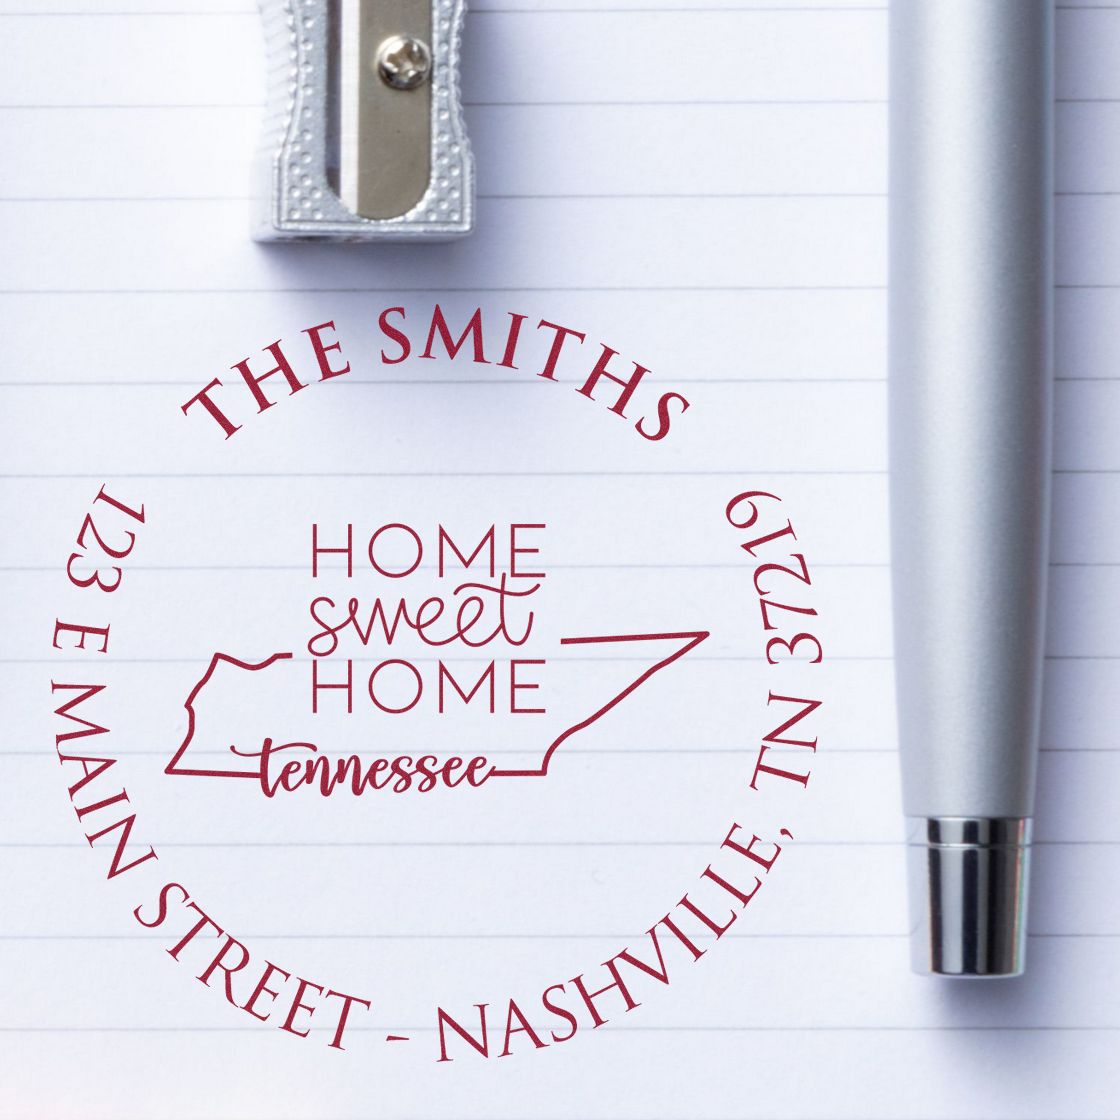 THE SMITHS
HOME
sweet
HOME
tennessee
123 E MAIN STREET - NASHVILLE, TN 37219